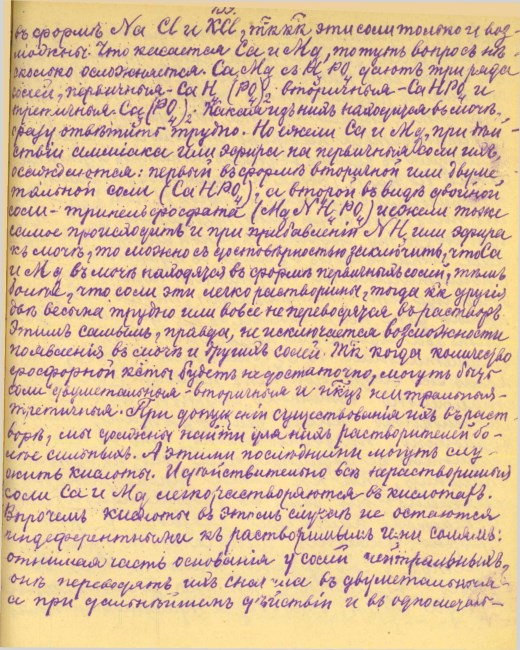 въ формѣ Na Cl и KCl, тк кк эти соли только и воз-
можны. Что касается Ca и Mg, то тутъ вопросъ нѣ-
сколько осложняется. Ca, Mg съ H3PO4 даютъ три ряда
солей, первичныя - CaH4(PO4)2, вторичныя - CaHPO4 и
третичныя Ca3(PO4)2. Какая изъ нихъ находится въ мочѣ,
сразу отвѣтить трудно. Но ежели Ca и Mg, при дѣй-
ствіи амміака или эфира на первичныя соли ихъ,
осаждаются: первый въ формѣ вторичной или двуме-
тальной соли (CaHPO4), а второй въ видѣ двойной
соли - трипельфосфата (MgNH4PO4) и ежели тоже
самое происходитъ и при прибавленіи NH3 или эфира
къ мочѣ, то можно съ достовѣрностью заключить, что Ca
и Mg въ мочѣ находятся въ формѣ первичныхъ солей, тѣмъ
болѣе, что соли эти легко растворимы, тогда кк другія
бы весьма трудно или вовсе не переводятся въ растворъ.
Этимъ самымъ, правда, не исключается возможности
появленія въ мочѣ и другихъ солей. Тк когда количество
фосфорной к-ты будетъ недостаточно, могутъ быть
соли двуметальныя - вторичныя и нейтральныя -
третичныя. При допущеніи существованія ихъ въ раст-
ворѣ, мы должны найти для нихъ растворителей бо-
лѣе сильныхъ. А этими послѣдними могутъ слу-
жить кислоты. И дѣйствительно всѣ нерастворимыя
соли Ca и Mg легко растворяются въ кислотахъ.
Впрочемъ кислоты въ этомъ случаѣ не остаются
индеферентными къ растворимымъ ими солямъ:
отнимая часть основанія у солей нейтральныхъ,
онѣ переводятъ ихъ сначала въ двуметальныя
а при дальнѣйшемъ дѣйствіи и въ однометаль-